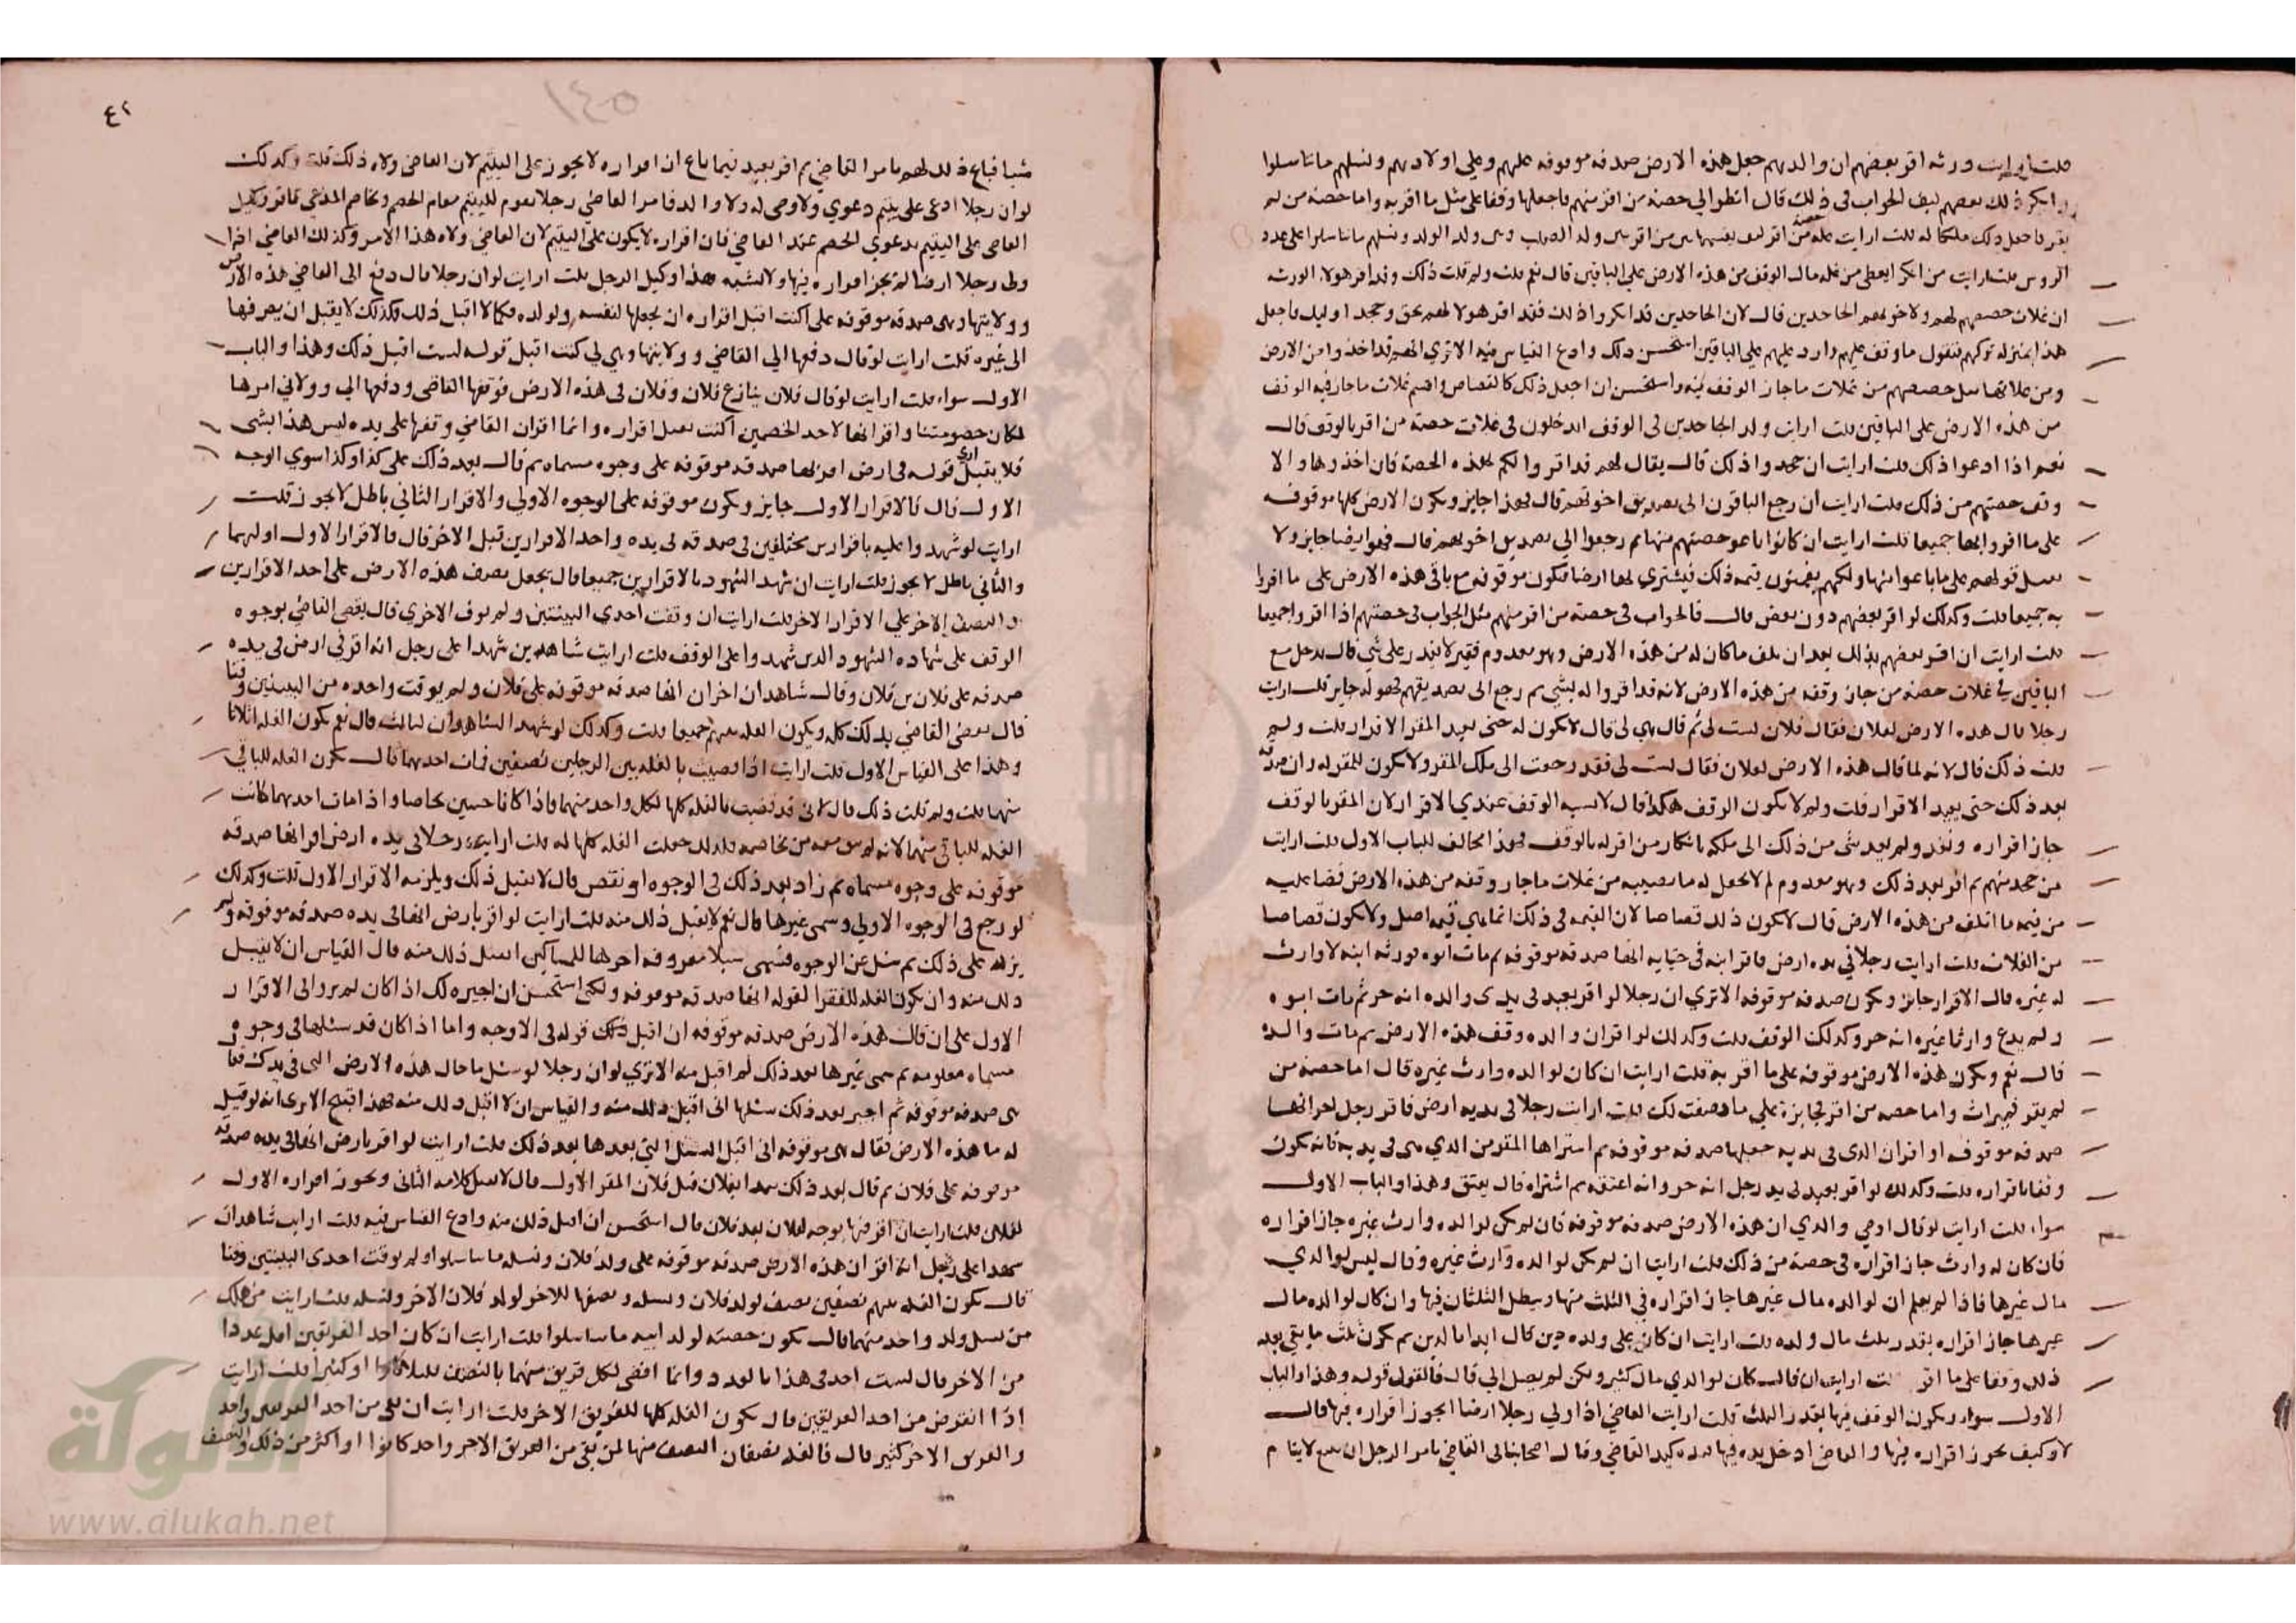 قلت ارايت ورثه اقر بعضهم ان والدهم جعل هذه الارض صدقه موقوفه عليهم وعلي اولادهم ونسلهم ما تناسلوا
وانكر ذلك بعضهم كيف الجواب في ذلك قال انظر الي حصة من اقر منهم فاجعلها وقفا على مثل ما اقر به واما حصة من لم
يقر فاجعل ذلك ملكا له قلت ارايت غله حصة من اقر من اقر ولد الصلب ولد الولد ونسلهم ما تناسلوا على عدد
الروس قلت ارايت من انكر ايعطى من غله مال الوقف من هذه الارض على الباقين قال نعم قلت ولم قلت ذلك وقد اقر هولا الورثه
ان غلات حصصهم لهم ولاخوتهم الجاحدين قال لان الجاحدين قد انكروا ذلك فقد اقر هولا لهم بحق وجحد اوليك فاجعل
هذا بمنزله تركهم فنقول ما وقف عليهم وارد عليهم علي الباقين استحسن ذلك وادع القياس فيه الا ترى انهم قد اخذوا من الارض
ومن غلاتها مثل حصصهم من غلات ما جاز الوقف فيه واستحسن ان اجعل ذلك كالقصاص واقسم غلات ما جاز فيه الوقف
من هذه الارض على الباقين قلت ارايت ولد الجاحدين في الوقف ايدخلون في غلات حصة من اقر بالوقف قال
نعم اذا ادعوا ذلك قلت ارايت ان جحدوا ذلك قال يقال لهم قد اقروا لكم بهذه الحصة فان اخذوها والا
وقف حصتهم من ذلك قلت ارايت ان رجع الباقون الى تصديق اخوتهم قال فهذا جايز وتكون الارض كلها موقوفه
على ما اقروا بها جميعا قلت ارايت ان كانوا باعوا حصتهم منها ثم رجعوا الي تصديق اخوتهم قال فهو ايضا جايز ولا
يعمل قولهم على ما باعوا منها ولكنهم يضمنون قيمة ذلك فيشتري بها ارضا فتكون موقوفه مع باقي هذه الارض على ما اقروا
به جميعا قلت وكذلك لو اقر بعضهم دون بعض قال فالجواب في حصة من اقر منهم مثل الجواب في حصتهم اذا اقروا جميعا
قلت ارايت ان اقر بعضهم بذلك بعد ان تلف ما كان له من هذه الارض وهو معدوم فقير لا يقدر على شي قال يدخل مع
الباقين في غلات حصة من جاز وقفه من هذه الارض لانه قد اقروا له بشي ثم رجع الى تصديقهم فهو له جايز قلت ارايت
رجلا قال هذه الارض لفلان فقال فلان ليست لي ثم قال هي لي قال لا تكون له حتى يعيد المقر الاقرار قلت ولم
قلت ذلك قال لانه لما قال هذه الارض لفلان فقال ليست لي فقد رجعت الى ملك المقر ولا تكون للمقر له وان صدقه
بعد ذلك حتى يعيد الاقرار قلت ولم لا يكون الوقف هكذا قال لا يشبه الوقف عندي الاقرار لان المقر بالوقف
جاز اقراره ونفذ ولم يعد شي من ذلك الى ملكه بانكار من اقر له بالوقف فهذا مخالف للباب الاول قلت ارايت
من جحد منهم ثم اقر بعد ذلك وهو معدوم لم لا تجعل له ما يصيبه من غلات ما جاز وقفه من هذه الارض قضا عليه
من قيمة ما اتلف من هذه الارض قال لا يكون ذلك قصاصا لان القيمه في ذلك انما هي قيمة اصل ولا تكون قصاصا
من الغلات قلت ارايت رجلا في يده ارض فاقر ابنه في حياته انها صدقه موقوفه ثم مات ابوه فورثه ابنه لا وارث
له غيره قال الاقرار جايز وتكون صدقه موقوفه الا تري ان رجلا لو اقر بعبد في يدي والده انه حر ثم مات ابوه
ولم يدع وارثا غيره انه حر وكذلك الوقف قلت وكذلك لو اقر ان والده وقف هذه الارض ثم مات والده
قال نعم وتكون هذه الارض موقوفه على ما اقر به قلت ارايت ان كان لوالده وارث غيره قال اما حصة من
لم يقر فميراث واما حصه من اقر فجايزة على ما وصفت لك قلت ارايت رجلا في يديه ارض فاقر رجل اخر انها
صدقه موقوفه او اقر ان الذي في يديه جعلها صدقه موقوفه ثم اشتراها المقر من الذي هي في يديه فانه تكون
وقفا باقراره قلت وكذلك لو اقر بعبد في يد رجل انه حر وانه اعتقه ثم اشتراه قال يعتق وهذا والباب الاول
سواء قلت ارايت لو قال اوصي والدي ان هذه الارض صدقه موقوفه فان لم يكن لوالده وارث غيره جاز اقراره
فان كان له وارث جاز اقراره في حصة من ذلك قلت ارايت ان لم يكن لوالده وارث غيره وقال ليس لوالدي
مال غيرها فاذا لم يعلم ان لوالده مال غيرها جاز اقراره في الثلث منها ويبطل الثلثان فيها وان كان لوالده مال
غيرها جاز اقراره بقدر ثلث مال والده قلت ارايت ان كان على والده دين قال ابدا بالدين ثم يكون ثلث ما بقي بعد
ذلك وقفا على ما اقر قلت ارايت ان قال كان لوالدي مال كثير ولكن لم يصل الي قال فالقول قوله وهذا والباب
الاول سواء ويكون الوقف فيها بقدر الثلث قلت ارايت القاضي اذا ولي رجلا ارضا ايجوز اقراره فيها قال
لا وكيف يجوز اقراره فيها والقاضي ادخل يده فيها يده كيد القاضي وقال اصحابنا في القاضي يامر الرجل ان يبيع لايتام
٤٢
١٤٥
شيا فباع ذلك لهم بامر القاضي ثم اقر بعيب فيما باع ان اقراره لا يجوز على اليتيم لان القاضي ولاه ذلك قلت وكذلك
لو ان رجلا ادعى على يتيم دعوي ولا وصى له ولا والد فامر القاضي رجلا يقوم لليتيم مقام الخصم وتخاصم المدعي فاقر وكيل
القاضي على اليتيم بدعوي الخصم عند القاضي فان اقراره لا يكون على اليتيم لان القاضي ولاه هذا الامر وكذلك القاضي اذا
ولى رجلا ارضا لم تجز اقراره فيها ولا يشبه هذا وكيل الرجل قلت ارايت لو ان رجلا قال دفع الى القاضي هذه الارض
وولايتها وهي صدقه موقوفه على اكنت اقبل اقراره ان يجعلها لنفسه ولولده فكما لا اقبل ذلك فكذلك لا يقبل ان يصرفها
الى غيره قلت ارايت لو قال دفعها الي القاضي وولايتها وهي لي كنت اقبل قوله لست اقبل ذلك وهذا والباب
الاول سواء قلت ارايت لو قال فلان ينازع فلان وفلان في هذه الارض فوقفها القاضي ودفعها الي وولاني امرها
لمكان خصومتنا واقر انها لاحد الخصمين اكنت تقبل اقراره وانما اقر ان القاضي وقفها على يده ليس هذا بشي
فلا يقبل قوله في ارض اقر انها صدقه موقوفه على وجوه مسماه ثم قال بعد ذلك على كذا وكذا سوي الوجه
الاول قال فالاقرار الاول جايز وتكون موقوفه على الوجوه الاولي والاقرار الثاني باطل لا يجوز قلت
ارايت لو شهدوا عليه باقرارين مختلفين في صدقه في يده واحد الاقرارين قبل الاخر قال فالاقرار الاول اولهما
والثاني باطل لا يجوز قلت ارايت ان شهد الشهود بالاقرارين جميعا قال يجعل نصف هذه الارض على احد الاقرارين
والنصف الاخر علي الاقرار الاخر قلت ارايت ان وقتت احدي البينتين ولم توقت الاخري قال يقضي القاضي بوجوه
الوقف على شهادة الشهود الذين شهدوا على الوقف قلت ارايت شاهدين شهدا على رجل انه اقر في ارض في يده
صدقه على فلان بن فلان وقال شاهدان اخران انها صدقه موقوفه على فلان ولم يوقت واحده من البينتين وقتا
قال يقضي القاضي بذلك كله ويكون الغله بينهم جميعا قلت وكذلك لو شهد الشاهدان لثالث قال نعم تكون الغله اثلاثا
وهذا على القياس الاول قلت ارايت اذا قضيت بالغله بين الرجلين نصفين فمات احدهما قال تكون الغله للباقي
منهما قلت ولم قلت ذلك قال لاني قد قضيت بالغله كلها لكل واحد منهما فاذا كانا حيين تحاصا واذا مات احدهما كانت
الغله للباقي منهما لانه لم يبق معه من يحاصه فلذلك جعلت الغله كلها له قلت ارايت رجلا في يده ارض اقر انها صدقه
موقوفه على وجوه مسماه ثم زاد بعد ذلك في الوجوه او نقص قال لا يقبل ذلك ويلزمه الاقرار الاول قلت وكذلك
لو رجع في الوجوه الاولي وسمى غيرها قال نعم لا يقبل ذلك منه قلت ارايت لو اقر بارض انها في يده صدقه موقوفه ولم
يزد على ذلك ثم سئل عن الوجوه فسمى سبلا معروفه اخرها للمساكين ايقبل ذلك منه قال القياس ان لا يقبل
ذلك منه وان يكون الغله للفقرا لقوله انها صدقه موقوفه ولكني استحسن ان اجيزه لك اذا كان لم يزد الى الاقرار
الاول على ان قال هذه الارض صدقه موقوفه ان اقبل ذلك قوله في الاوجه واما اذا كان قد سبلها في وجوه
مسماه معلومه ثم سمى غيرها بعد ذلك لم اقبل منه الا تري لو ان رجلا لو سئل ما حال هذه الارض التي في يدك فقال
هي صدقه موقوفه ثم اخبر بعد ذلك سبلها اني اقبل ذلك منه والقياس ان لا اقبل ذلك منه فهذا اقبح الا ترى انه لو قيل
له ما هذه الارض فقال هي موقوفه اني اقبل السبل التي بعدها بعد ذلك قلت ارايت لو اقر بارض انها في يده صدقه
موقوفه على فلان ثم قال بعد ذلك يبدا بفلان قبل فلان المقر الاول قال لا يقبل كلامه الثاني ويجوز اقراره الاول
لفلان قلت ارايت ان اقر فيها بوجه لفلان بعد فلان قال استحسن ان اقبل ذلك منه وادع القياس فيه قلت ارايت شاهدان
شهدا على رجل انه اقر ان هذه الارض صدقه موقوفه على ولد فلان ونسله ما تناسلوا ولم يوقت احدى البينتين وقتا
قال تكون الغله بينهم نصفين نصف لولد فلان ونسله ونصفها للاخر لولد فلان الاخر ولنسله قلت ارايت من هلك
من نسل ولد واحد منهما قال تكون حصته لولد ابيه ما تناسلوا قلت ارايت ان كان احد الفريقين اقل عددا
من الاخر قال لست احد في هذا بالعدد وانما اقضى لكل فريق منهما بالنصف قليلا كانوا او كثيرا قلت ارايت
اذا انقرض من احد الفريقين قال تكون الغله كلها للفريق الاخر قلت ارايت ان بقي من احد الفريقين واحد
والفريق الاخر كثير قال فالغله نصفان النصف منها لمن بقي من الفريق الاخر واحد كانوا او اكثر من ذلك والنصف
الألوكة
www.alukah.net